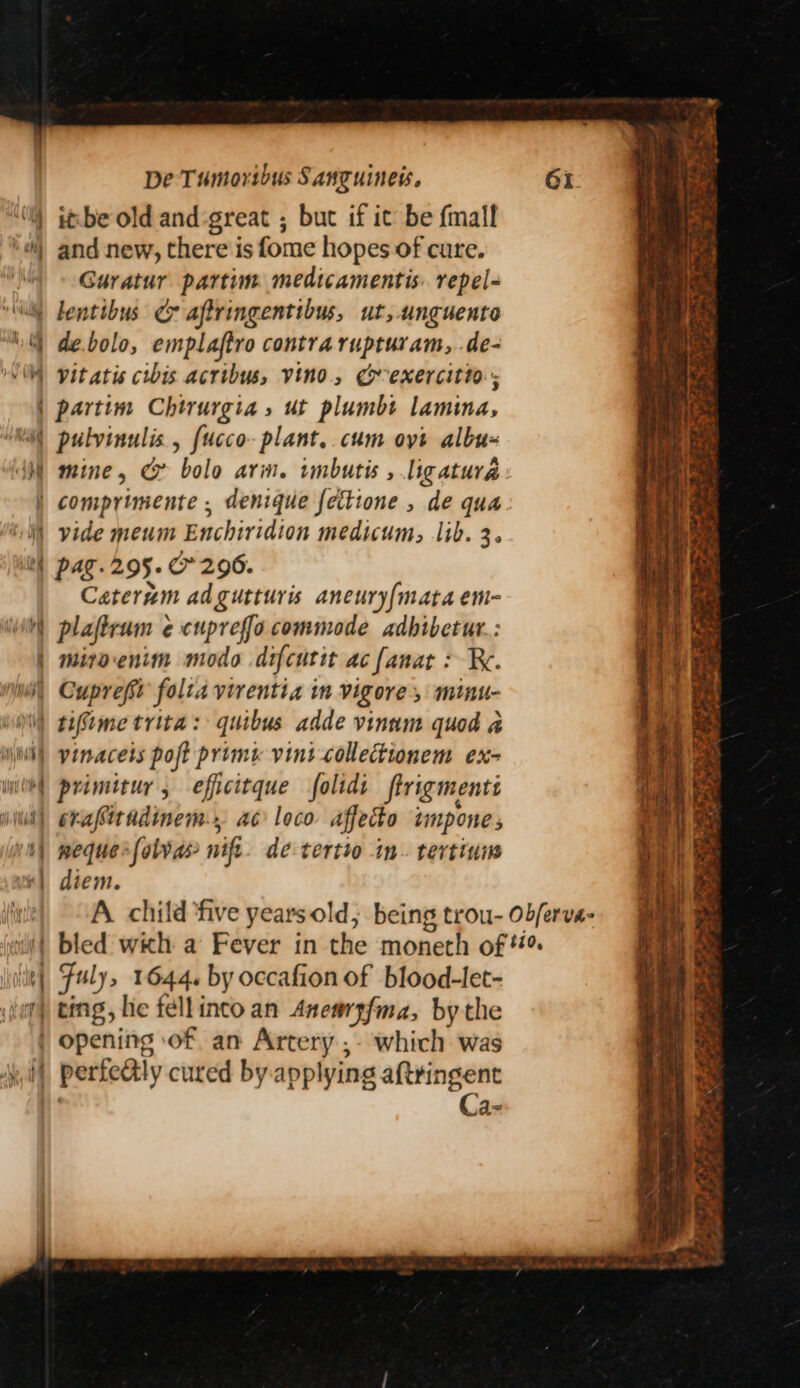 De Tumoribus Sanguineis. 61
it be old and great ; but if it be ſmall
and new, there is ſome hopes of cure.
Curatur partim medicamentis repel-
lentibus & aſtringentibus, ut, unguento
de bolo, emplaſtro contra rupturam, de-
vitatis cibis acribus, vino, & exercitio ;
partim Chirurgia, ut plumbi lamina,
pulvinulis, ſucco plant. cum ovi albu-
mine, & bolo arm. imbutis, ligaturâ
comprimente ; denique ſectione, de qua
vide meum Enchiridion medicum, lib. 3.
pag. 295. & 296.
Cæterùm ad gutturis aneuryſmata em-
plaſtrum è cupreſſo commode adhibetur :
miro enim modo diſcutit ac ſanat : ℞.
Cupreſſi folia virentia in vigore, minu-
tiſſime trita : quibus adde vinum quod à
vinaceis poſt primi vini collectionem ex-
primitur, efficitque ſolidi ſtrigmenti
craſſitudinem, ac loco affecto impone,
neque ſolvas niſi de tertio in tertium
diem.
A child five years old, being trou- Obſerva-
bled with a Fever in the moneth of tio.
July, 1644. by occaſion of blood-let-
ting, he fell into an Aneuryſma, by the
opening of an Artery, which was
perfectly cured by applying aſtringent
Ca-